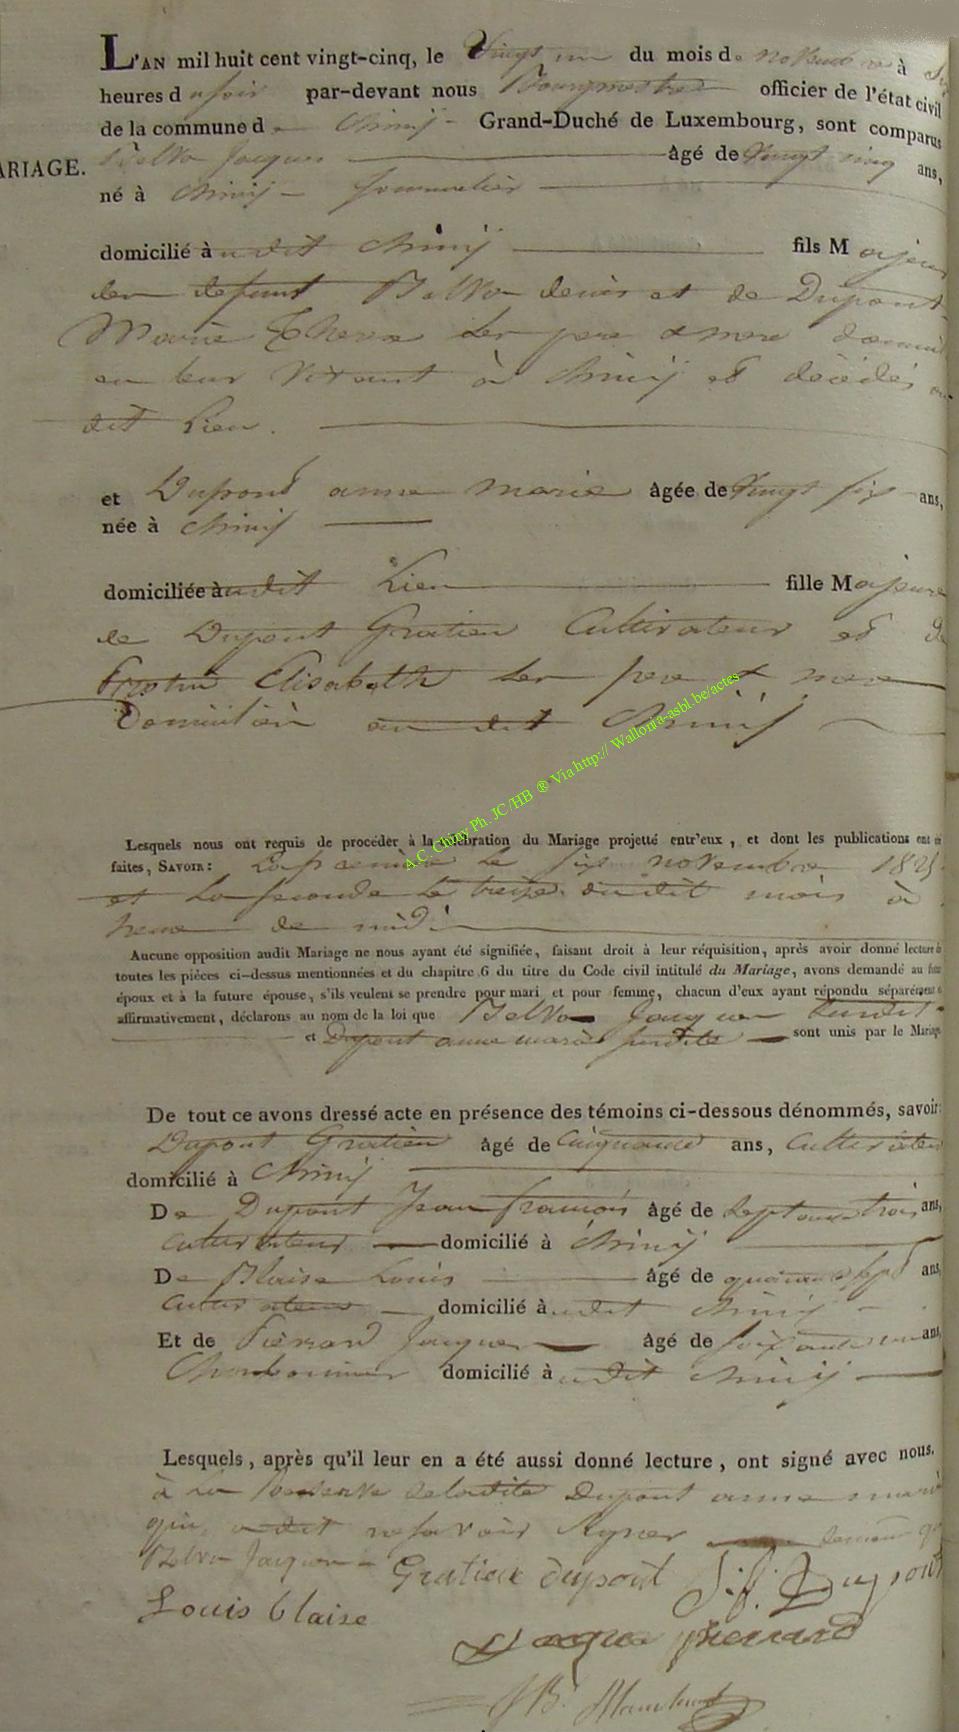 L'AN mil huit cent vingt-cinq, le Vingt un du mois de novembre à Six
heures du soir par-devant nous Bourgmestre officier de l'état civil
de la commune de Chiny Grand-Duché de Luxembourg, sont comparus
MARIAGE.
Belva Jacques âgé de Vingt cinq ans,
né à Chiny
domicilié audit Chiny fils Majeur
de defunt Belva denis et de Dupont
Marie Therese Ses pere et mere
en leur Vivant à Chiny et décédés au
dit Lieu.
et Dupont anne marie âgée de Vingt six ans,
née à Chiny
domiciliée audit Lieu fille Majeure
de Dupont Gratien Cultivateur et de
Elisabeth Ses pere et mere
Domiciliés au dit Chiny
A.C. Chiny Ph. JC/HB ® Via http:// Wallonia-asbl.be/actes
Lesquels nous ont requis de procéder à la célébration du Mariage projetté entr'eux, et dont les publications ont
faites, SAVOIR: La premiere Le six novembre 1825
et La seconde Le treize dudit mois à
heure de midi
Aucune opposition audit Mariage ne nous ayant été signifiée, faisant droit à leur réquisition, après avoir donné lecture de
toutes les pièces ci-dessus mentionnées et du chapitre 6 du titre du Code civil intitulé du Mariage, avons demandé au futur
époux et à la future épouse, s'ils veulent se prendre pour mari et pour femme, chacun d'eux ayant répondu séparément
affirmativement, déclarons au nom de la loi que Belva Jacques Susdit
et Dupont anne marie susdite sont unis par le Mariage
De tout ce avons dressé acte en présence des témoins ci-dessous dénommés, savoir:
Dupont Gratien âgé de Cinquante ans, Cultivateur
domicilié à Chiny
De Dupont Jean françois âgé de Septante trois ans,
Cultivateur domicilié à Chiny
De Blaise Louis âgé de quarante sept ans,
Cultivateur domicilié audit Chiny
Et de Pierrard Jacques âgé de soixante un ans,
Charbonnier domicilié audit Chiny
Lesquels, après qu'il leur en a été aussi donné lecture, ont signé avec nous.
à la Reserve de ladite Dupont anne marie
qui a dit ne savoir Signer
Belva Jacques Gratien dupont J. f. Dupont
Louis blaise
Jacque Pierrard
JB